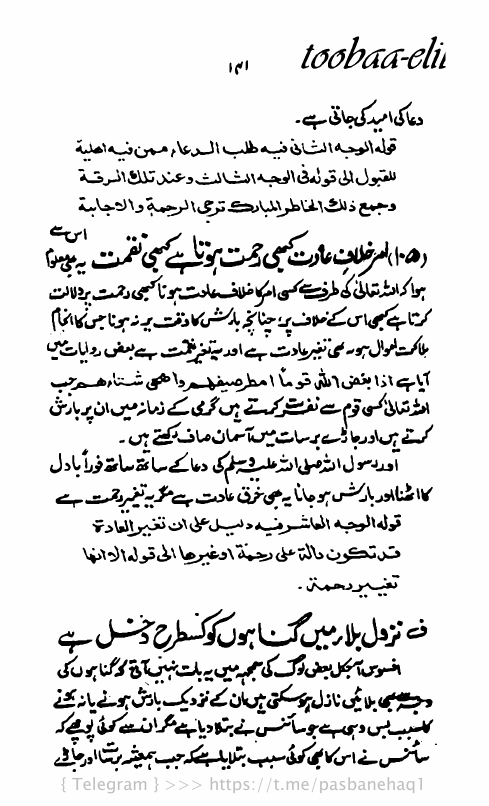 toobaa-elil
۱۳۱
دعا کی امید کی جاتی ہے۔
قوله الوجه الثانی فیه طلب الدعاء ممن فیه اهلیة
للقبول الی قوله فی الوجه الثالث وعند تلك الرقة
وجمع ذلك الخاطر المبارك ترجی الرحمة والاجابة
(۱۰۵) امر خلاف عادت کبھی رحمت ہوتا ہے کبھی نقمت اس سے یہ بھی معلوم
ہوا کہ اللہ تعالیٰ کی طرف سے کسی امر کا خلاف عادت ہونا کبھی رحمت پر دلالت
کرتا ہے کبھی اس کے خلاف پر، چنانچہ بارش کا وقت پر نہ ہونا جس کا انجام
ہلاکت اموال ہو یہ بھی تغیر عادت ہے اور یہ تغیر نقمت ہے بعض روایات میں
آیا ہے اذا بغض اللہ قوما امطر صیفهم واصحی شتاءهم جب
اللہ تعالیٰ کسی قوم سے نفرت کرتے ہیں گرمی کے زمانہ میں ان پر بارش
کرتے ہیں اور جاڑے برسات میں آسمان صاف رکھتے ہیں۔
اور رسول اللہ صلی اللہ علیہ وسلم کی دعا کے ساتھ ساتھ فوراً بادل
کا اٹھنا اور بارش ہو جانا یہ بھی خرق عادت ہے مگر یہ تغیر رحمت ہے
قوله الوجه العاشر فیه دلیل علی ان تغیر العادة
قد تکون دالة علی رحمة او غیرها الی قوله الا انها
تغییر رحمة۔
ف نزول بلاء میں گناہوں کو کس طرح دخل ہے
افسوس آجکل بعض لوگ کی سمجھ میں یہ بات نہیں آتی کہ گناہوں کی
وجہ سے بھی بلائیں نازل ہو سکتی ہیں ان کے نزدیک بارش ہونے یا نہ ہونے
کا سبب بس وہی ہے جو سائنس نے بتلا دیا ہے مگر ان سے کوئی پوچھے کہ
سائنس نے اس کا بھی کوئی سبب بتلایا ہے کہ جب ہمیشہ برسات اور جاڑے
{ Telegram } >>> https://t.me/pasbanehaq1